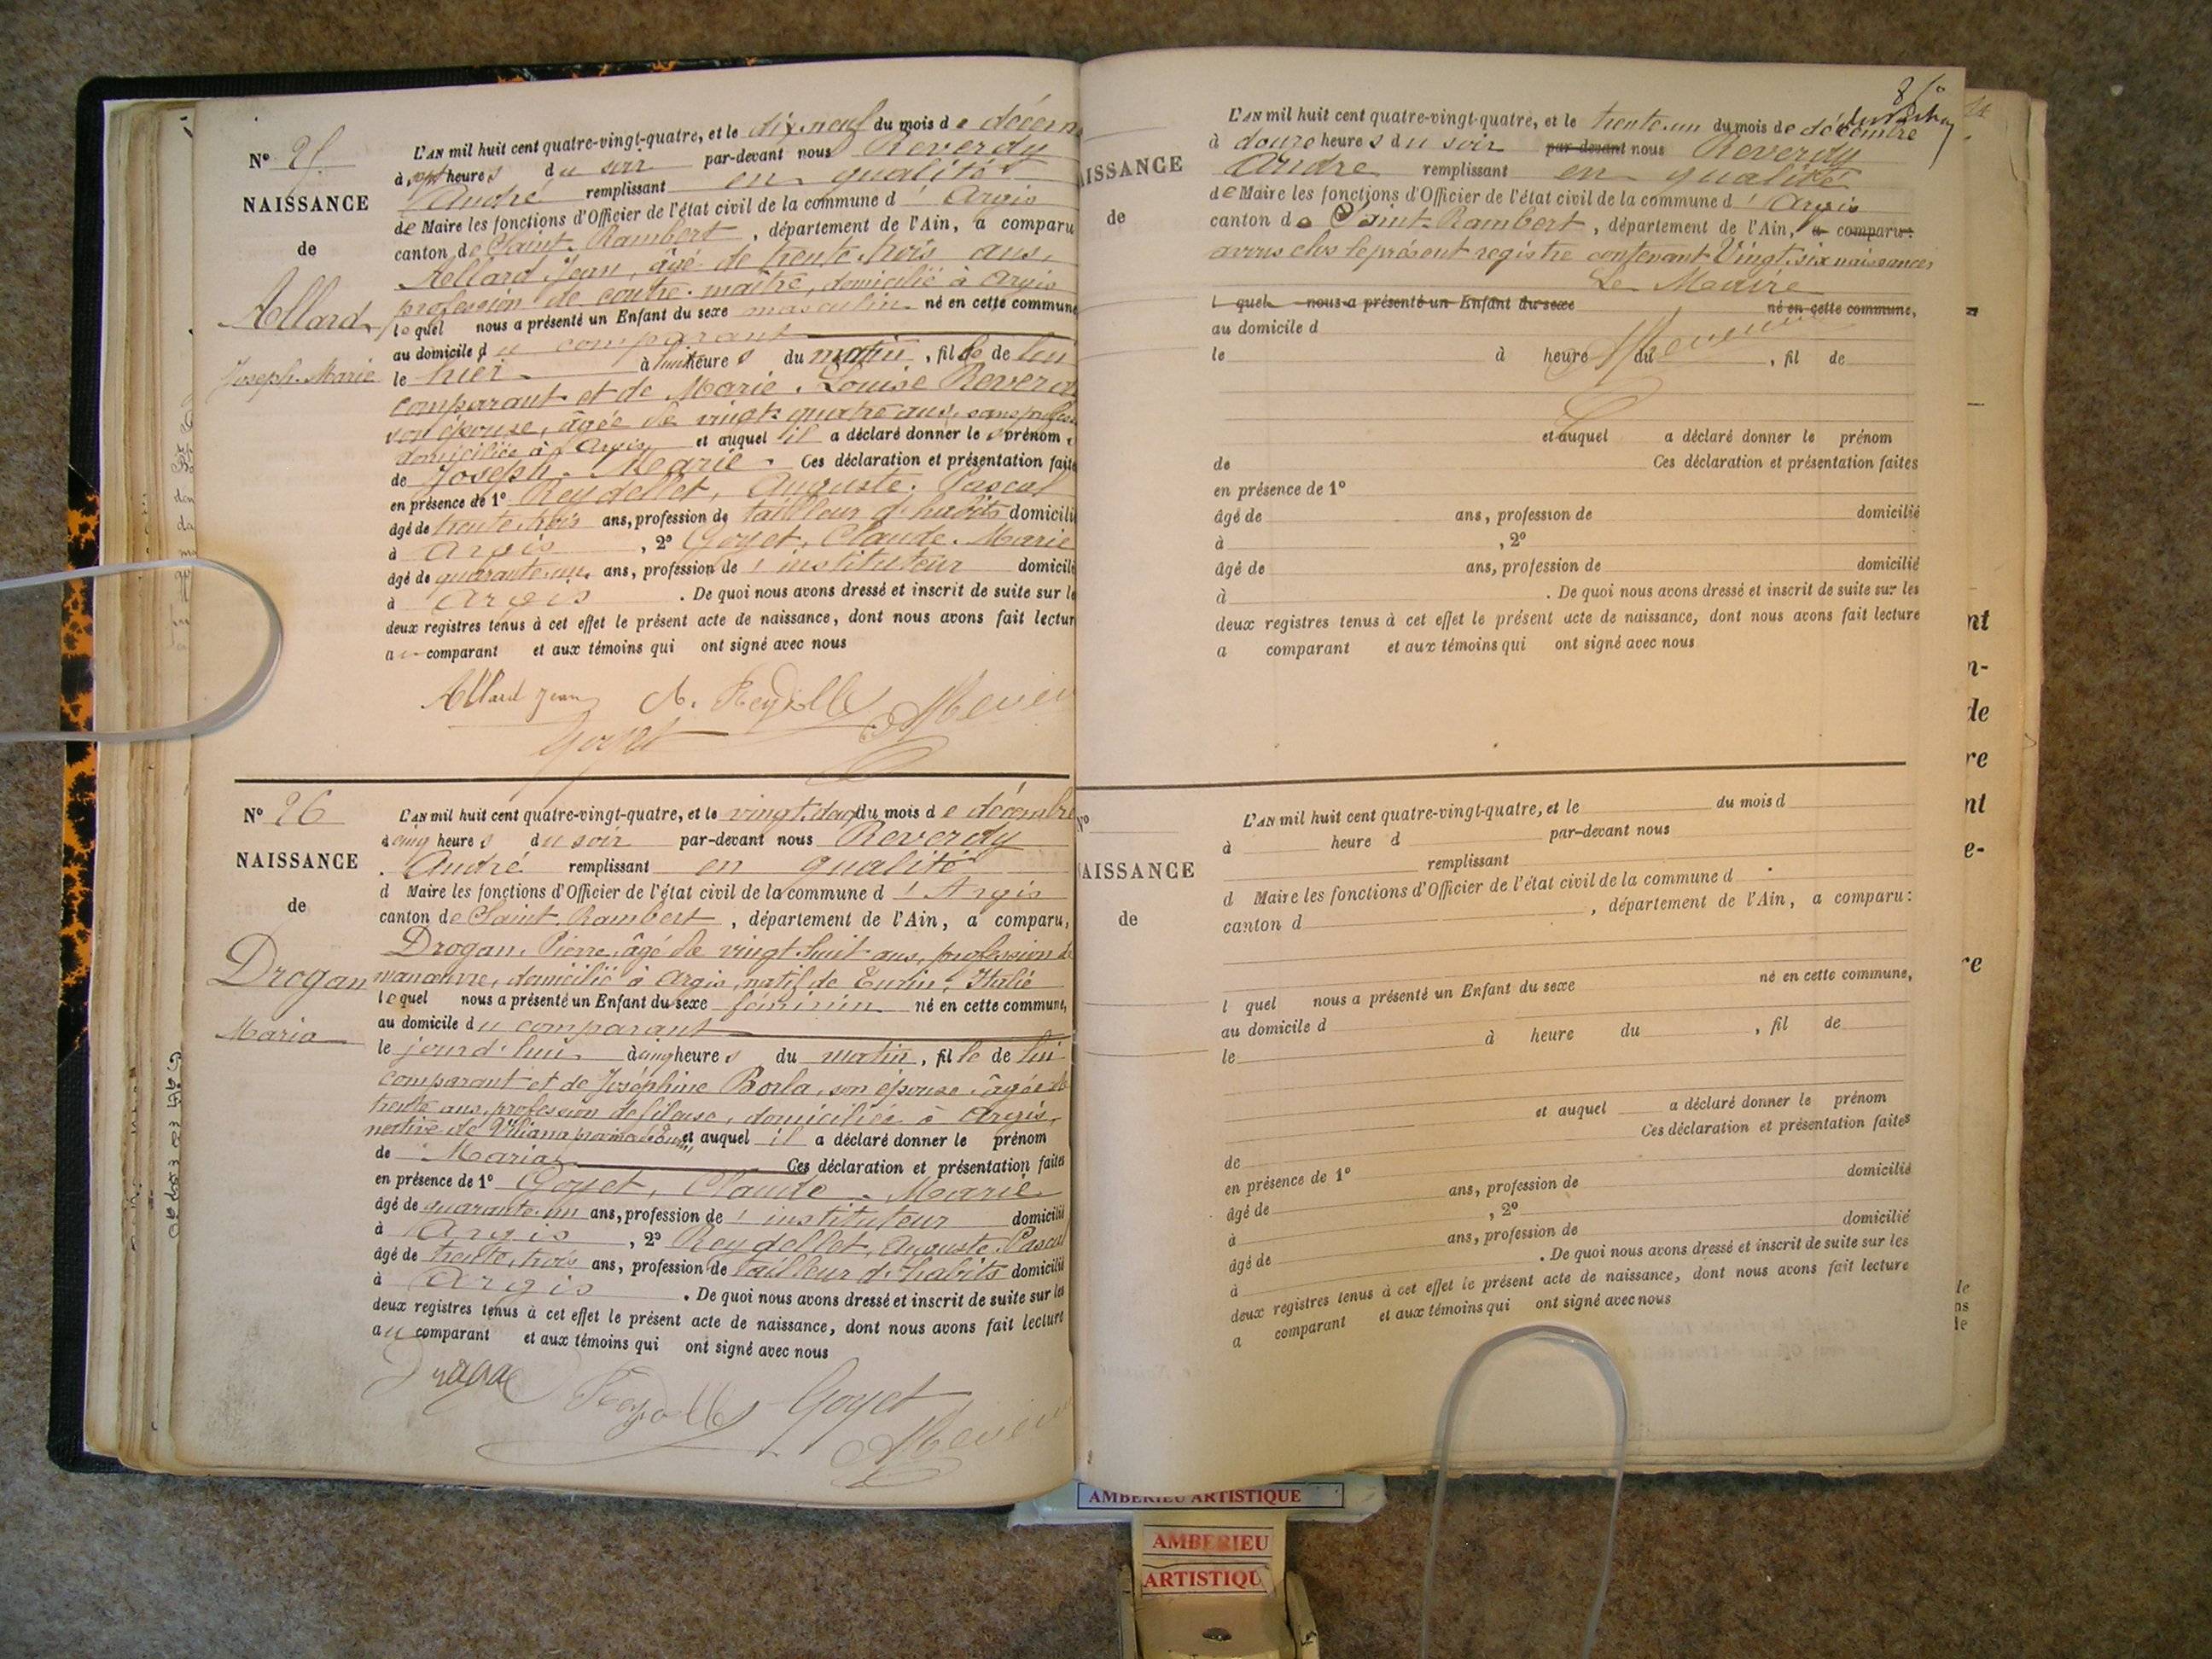 N° 25
NAISSANCE
de
Allard
Joseph-Marie
L'AN mil huit cent quatre-vingt-quatre, et le dix-neuf du mois de décem
à sept heures du soir par-devant nous Reverdy
André remplissant en qualité
de Maire les fonctions d'Officier de l'état civil de la commune d'Argis
canton de Saint-Rambert, département de l'Ain, a comparu
Allard Jean, âgé de trente-trois ans,
profession de contre-maître, domicilié à Argis
lequel nous a présenté un Enfant du sexe masculin né en cette commune
au domicile du comparant
le hier à huit heures du matin, fils de lui
comparant et de Marie-Louise Reverd
son épouse, âgée de vingt-quatre ans, sans profess
domiciliée à Argis, et auquel il a déclaré donner les prénom
de Joseph-Marie. Ces déclaration et présentation faite
en présence de 1° Reydellet, Auguste, Pascal
âgé de trente-trois ans, profession de tailleur d'habits domicili
à Argis, 2° Goyet, Claude-Marie
âgé de quarante-un ans, profession de l'instituteur domicili
à Argis. De quoi nous avons dressé et inscrit de suite sur le
deux registres tenus à cet effet le présent acte de naissance, dont nous avons fait lectur
au comparant et aux témoins qui ont signé avec nous
Allard Jean A. Reydellet
Goyet
N° 26
NAISSANCE
de
Drogan
Maria
L'AN mil huit cent quatre-vingt-quatre, et le vingt-deux du mois de décembre
à cinq heures du soir par-devant nous Reverdy
André remplissant en qualité
d Maire les fonctions d'Officier de l'état civil de la commune d'Argis
canton de Saint-Rambert, département de l'Ain, a comparu,
Drogan, Pierre, âgé de vingt-huit ans, profession de
manœuvre, domicilié à Argis, natif de Turin, Italie
lequel nous a présenté un Enfant du sexe féminin né en cette commune,
au domicile du comparant
le jourd'hui à cinq heures du matin, fille de lui
comparant et de Joséphine Borla, son épouse, âgée de
trente ans, profession de fileuse, domiciliée à Argis,
native de et auquel il a déclaré donner le prénom
de Maria Ces déclaration et présentation faites
en présence de 1° Goyet, Claude-Marie
âgé de quarante-un ans, profession de l'instituteur domicilié
à Argis, 2° Reydellet, Auguste, Pascal
âgé de trente-trois ans, profession de tailleur d'habits domicilié
à Argis. De quoi nous avons dressé et inscrit de suite sur les
deux registres tenus à cet effet le présent acte de naissance, dont nous avons fait lecture
au comparant et aux témoins qui ont signé avec nous
Reydellet Goyet
AISSANCE
de
L'AN mil huit cent quatre-vingt-quatre, et le trente-un du mois de décembre
à douze heures du soir par-devant nous Reverdy
André remplissant en qualité
de Maire les fonctions d'Officier de l'état civil de la commune d'Argis
canton de Saint-Rambert, département de l'Ain, a comparu:
avons clos le présent registre contenant Vingt-six naissances
Le Maire
l quel nous a présenté un Enfant du sexe né en cette commune,
au domicile d
le à heure du , fil de
et auquel a déclaré donner le prénom
de Ces déclaration et présentation faites
en présence de 1°
âgé de ans, profession de domicilié
à , 2°
âgé de ans, profession de domicilié
à . De quoi nous avons dressé et inscrit de suite sur les
deux registres tenus à cet effet le présent acte de naissance, dont nous avons fait lecture
a comparant et aux témoins qui ont signé avec nous
N°
AISSANCE
de
L'AN mil huit cent quatre-vingt-quatre, et le du mois d
à heure d par-devant nous
remplissant
d Maire les fonctions d'Officier de l'état civil de la commune d
canton d , département de l'Ain, a comparu:
l quel nous a présenté un Enfant du sexe né en cette commune,
au domicile d
le à heure du , fil de
et auquel a déclaré donner le prénom
de Ces déclaration et présentation faites
en présence de 1°
âgé de ans, profession de domicilié
à , 2°
âgé de ans, profession de domicilié
à . De quoi nous avons dressé et inscrit de suite sur les
deux registres tenus à cet effet le présent acte de naissance, dont nous avons fait lecture
a comparant et aux témoins qui ont signé avec nous
AMBERIEU ARTISTIQUE
AMBERIEU
ARTISTIQU